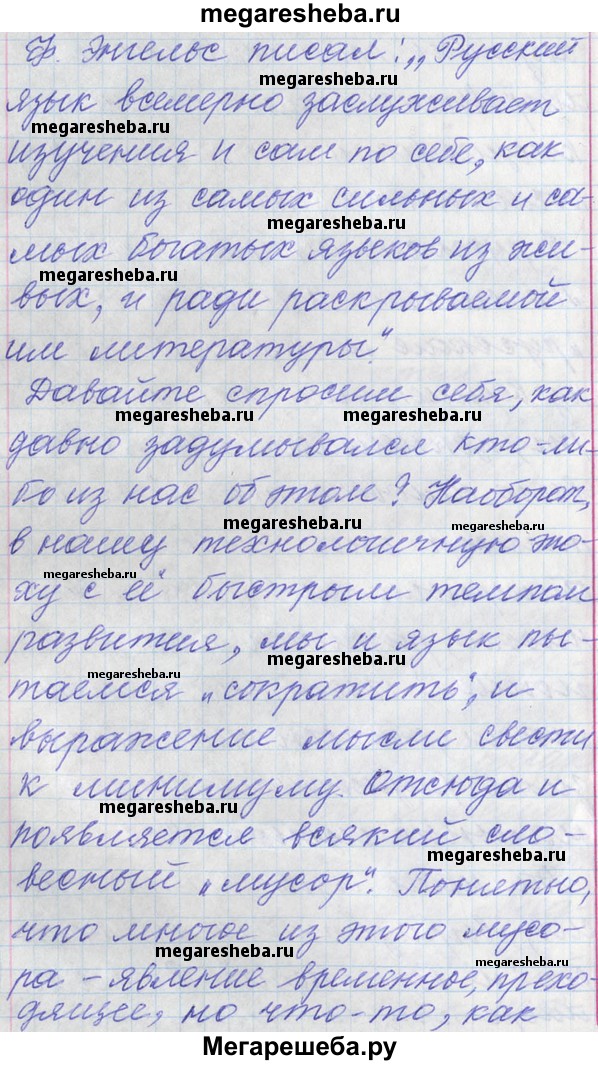 megaresheba.ru
Ф. Энгельс писал: „Русский
megaresheba.ru
язык всемерно заслуживает
megaresheba.ru
изучения и сам по себе, как
megaresheba.ru
один из самых сильных и са-
megaresheba.ru
мых богатых языков из жи-
megaresheba.ru
вых, и ради раскрываемой
им литературы".
Давайте спросим себя, как
megaresheba.ru megaresheba.ru
давно задумывался кто-ли-
бо из нас об этом? Наоборот,
megaresheba.ru megaresheba.ru
в нашу технологичную эпо-
megaresheba.ru
ху с её быстрым темпом
развития, мы и язык пы-
megaresheba.ru
megaresheba.ru
таемся „сократить", и
выражение мысли свести
к минимуму. Отсюда и
megaresheba.ru
появляется всякий сло-
megaresheba.ru
весный „мусор". Понятно,
что многое из этого мусо-
megaresheba.ru
megaresheba.ru
ра - явление временное, прехо-
дящее, но что-то, как
Мегарешеба.ру